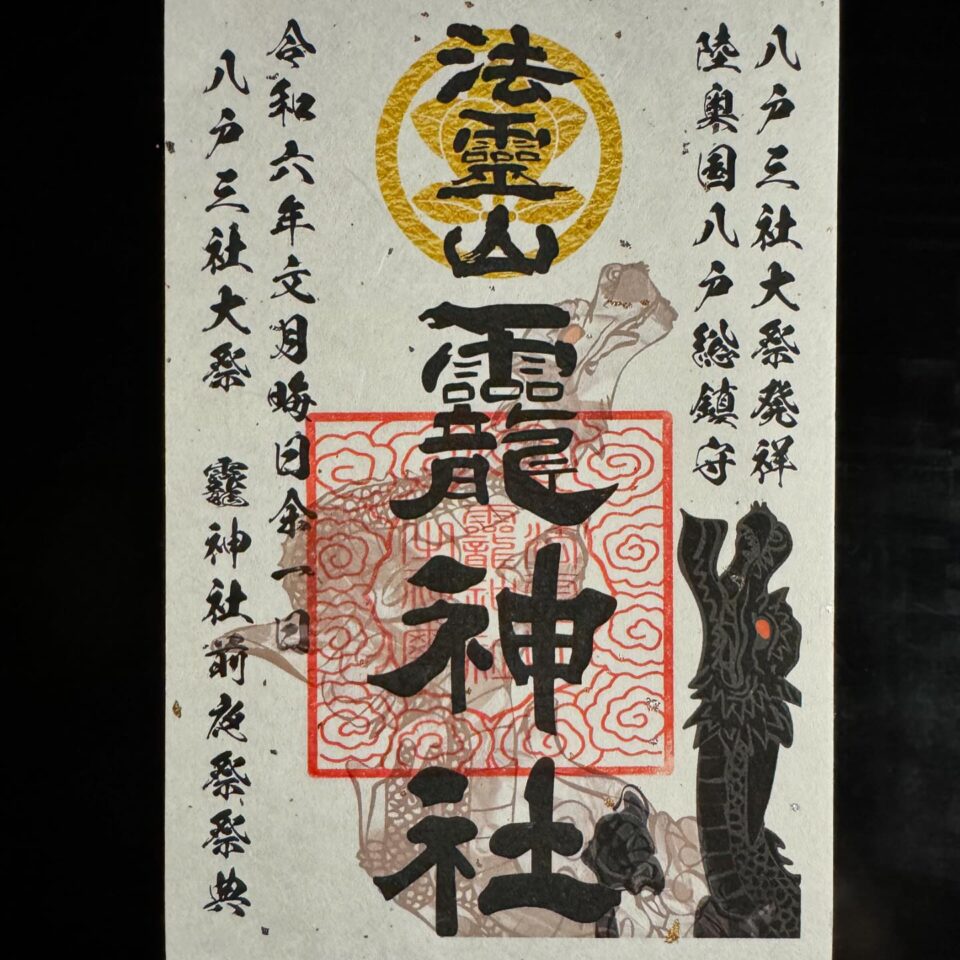 八戸三社大祭発祥
陸奥国八戸総鎮守
法靈山
龗神社
令和六年文月晦日余一日
八戸三社大祭　龗神社前夜祭祭典